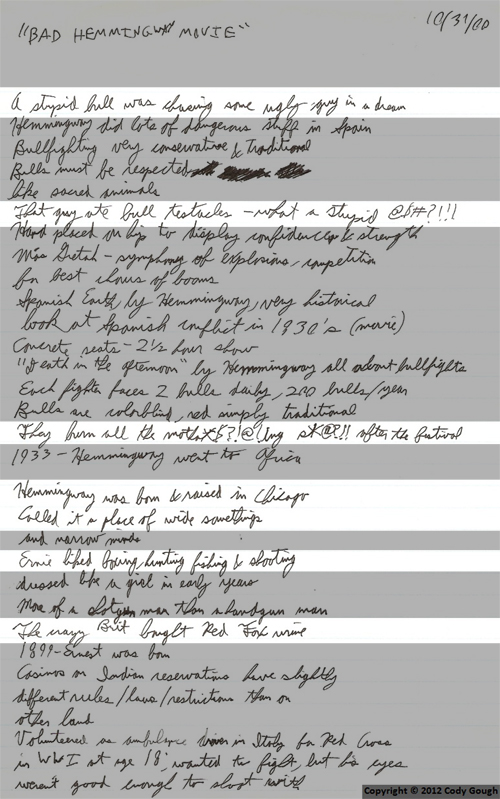 "BAD HEMMINGWAY MOVIE"
10/31/00
A stupid bull was chasing some ugly guy in a dream
Hemmingway did lots of dangerous stuff in Spain
Bullfighting very conservative & traditional
Bulls must be respected
like sacred animals
That guy ate bull testacles - what a stupid @$#?!!!
Hand placed on hip to display confidence & strength
Mas Gretah - symphony of explosions, competition
for best chorus of booms
Spanish Earth, by Hemmingway, very historical
look at Spanish conflict in 1930's (movie)
Concrete seats - 2½ hour show
"Death in the afternoon" by Hemmingway all about bullfights
Each fighter faces 2 bulls daily, 200 bulls/year
Bulls are colorblind, red simply traditional
They burn all the moth*$?!@(!ng s#@?!! after the festival
1933 - Hemmingway went to Africa
Hemmingway was born & raised in Chicago
Called it a place of wide somethings
and narrow minds
Ernie liked boxing, hunting fishing & shooting
dressed like a girl in early years
More of a shotgun man than a handgun man
The crazy Brit bought Red Fox urine
1899 - Ernest was born
Casinos on Indian reservations have slightly
different rules/laws/restrictions than on
other land
Volunteered as ambulance driver in Italy for Red Cross
in WWI at age 18; wanted to fight, but his eyes
weren't good enough to shoot with
Copyright © 2012 Cody Gough